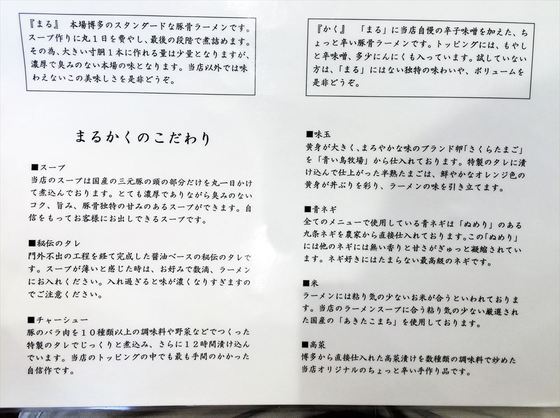 『まる』 本場博多のスタンダードな豚骨ラーメンです。
スープ作りに丸１日を費やし、最後の段階で煮詰めます。
その為、大きい寸胴１本に作れる量は少量となりますが、
濃厚で臭みのない本場の味となります。当店以外では味
わえないこの美味しさを是非どうぞ。
まるかくのこだわり
■スープ
当店のスープは国産の三元豚の頭の部分だけを丸一日かけ
て煮込んでおります。とても濃厚でありながら臭みのない
コク、旨み、豚骨独特の甘みのあるスープができます。自
信をもってお客様にお出しできるスープです。
■秘伝のタレ
門外不出の工程を経て完成した醤油ベースの秘伝のタレで
す。スープが薄いと感じた時は、お好みで数滴、ラーメン
にお入れください。入れ過ぎると味が濃くなりすぎますの
でご注意ください。
■チャーシュー
豚のバラ肉を１０種類以上の調味料や野菜などでつくった
特製のタレでじっくりと煮込み、さらに１２時間漬け込ん
でいます。当店のトッピングの中でも最も手間のかかった
自信作です。
『かく』 「まる」に当店自慢の辛子味噌を加えた、ち
ょっと辛い豚骨ラーメンです。トッピングには、もやし
と辛味噌、多少にんにくも入っています。試していない
方は、「まる」にはない独特の味わいや、ボリュームを
是非どうぞ。
■味玉
黄身が大きく、まろやかな味のブランド卵「さくらたまご」
を「青い鳥牧場」から仕入れております。特製のタレに漬
け込んで仕上がった半熟たまごは、鮮やかなオレンジ色の
黄身が丼ぶりを彩り、ラーメンの味を引き立てます。
■青ネギ
全てのメニューで使用している青ネギは「ぬめり」のある
九条ネギを農家から直接仕入れております。この「ぬめり」
には他のネギには無い香りと甘さがぎゅっと凝縮されてい
ます。ネギ好きにはたまらない最高級のネギです。
■米
ラーメンには粘り気の少ないお米が合うといわれておりま
す。当店のラーメンスープに合う粘り気の少ない厳選され
た国産の「あきたこまち」を使用しております。
■高菜
博多から直接仕入れた高菜漬けを数種類の調味料で炒めた
当店オリジナルのちょっと辛い手作り品です。